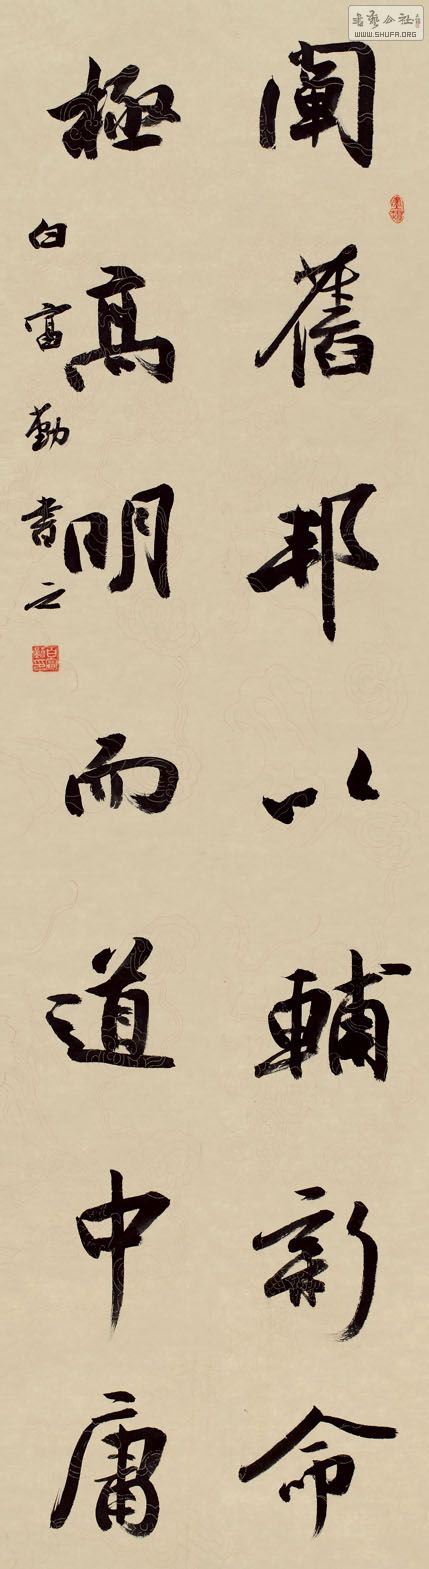 闡舊邦以輔新命
極高明而道中庸
白富勤書之
書藝公社
WWW.SHUFA.ORG